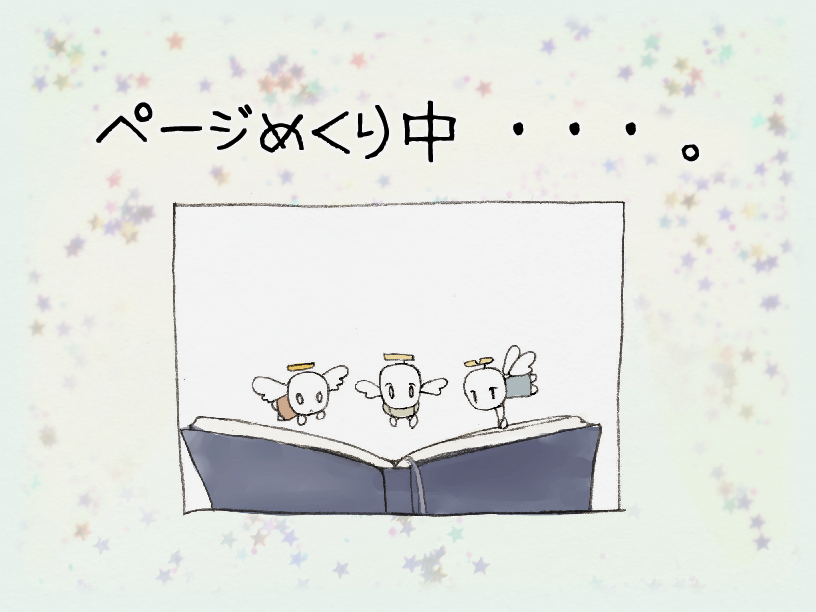 ページめくり中 ・・・。